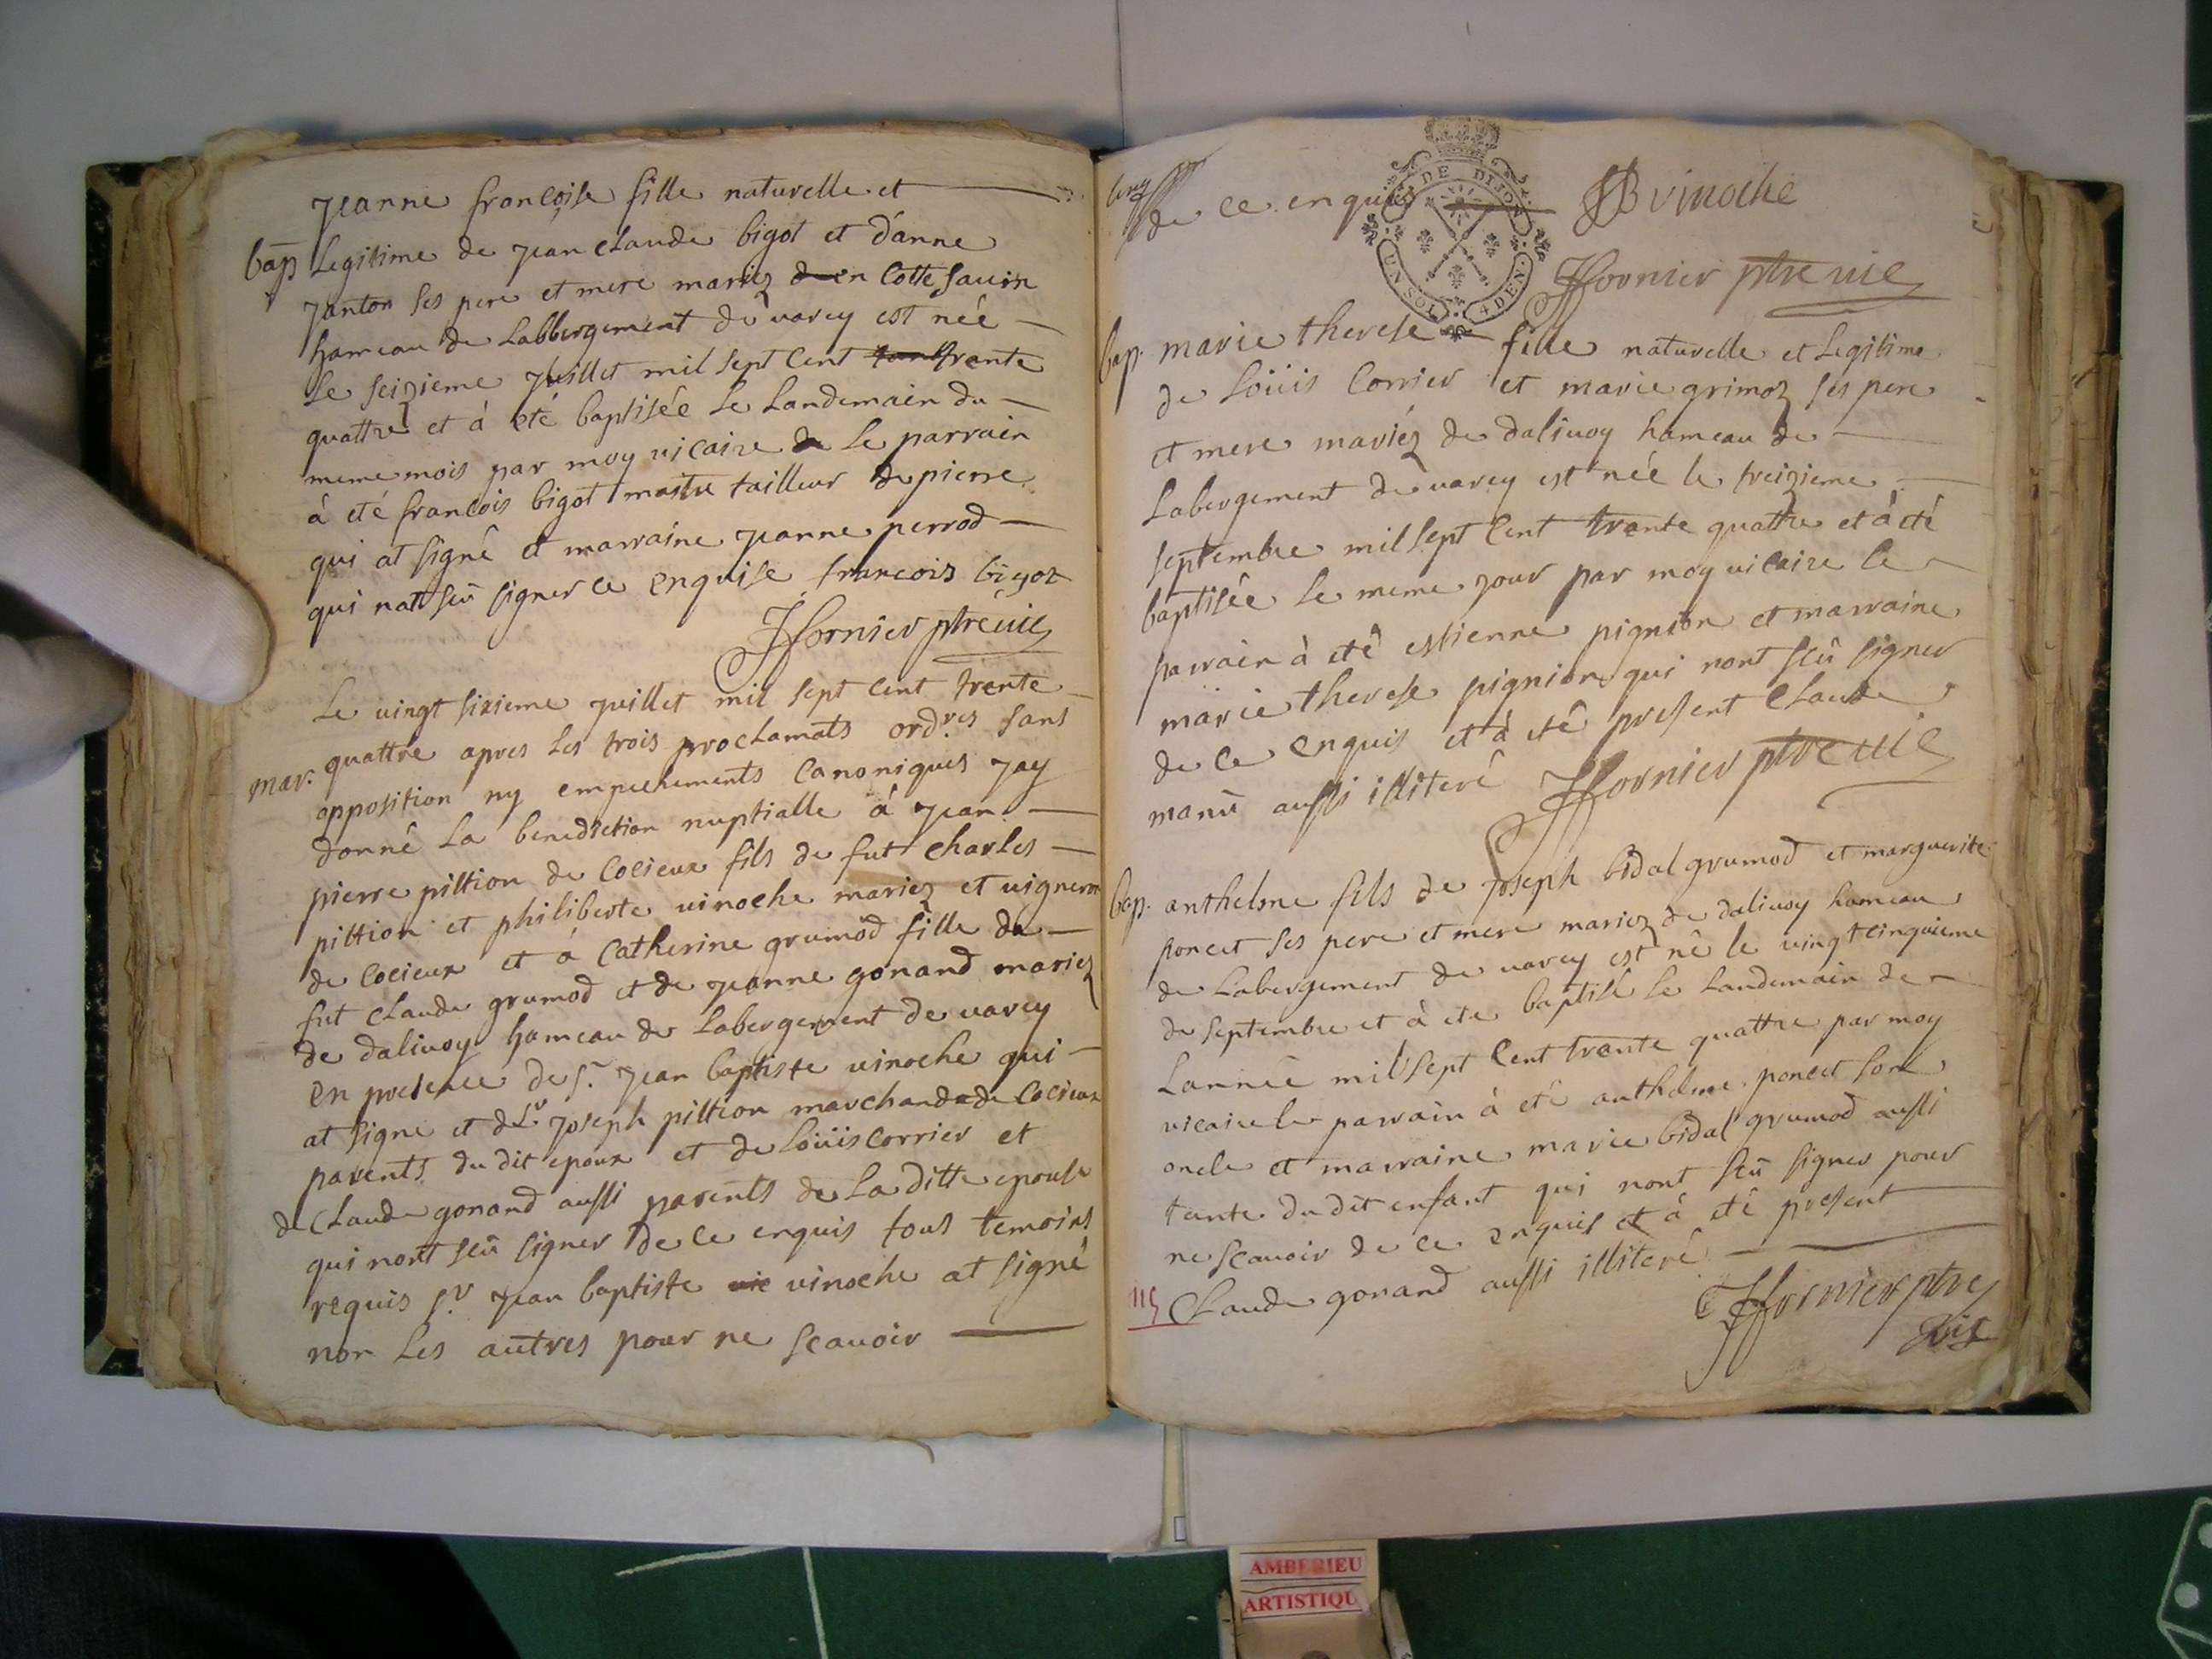 jeanne francoise fille naturelle et
bap Legitime de jean claude bigot et d'anne
janton ses pere et mere mariez de en Cotte savin
hameau de Labbergement de varey est née
le seizieme juillet mil sept cent trante
quattre et à eté baptisée le Landemain du
meme mois par moy vicaire de le parrain
à eté francois bigot maitre tailleur de pierre
qui at signé et marraine jeanne perrod
qui nat sçû signer ce enquise francois bigot
Fornier ptre vic
Le vingt sixieme juillet mil sept cent trente
mar. quattre apres les trois proclamats ord.res sans
opposition ny empechements canoniques jay
donné la benediction nuptialle à jean
pierre pittion de cocieux fils de fut charles
pittion et philiberte vinoche mariez et vigneron
de cocieux et à Catherine grumod fille de
fut claude grumod et de jeanne gonand mariez
de dalivoy hameau de Labergement de varey
en presence de s.r jean baptiste vinoche qui
at signe et de s.r joseph pittion marchand de cocieux
parents du dit epoux et de Loüis corrier et
de claude gonand aussi parents de la ditte epouse
qui nont sçû signer de ce enquis tous temoins
requis s.r jean baptiste vic vinoche at signé
non les autres pour ne scavoir
de ce enquis JB vinoche
DE DIJON
UN SOL 4 DEN.
Fornier ptre vic
bap. marie therese fille naturelle et Legitime
de Loüis Corrier et marie grimoz ses pere
et mere mariéz de dalivoy hameau de
Labergement de varey est née le treizieme
septembre mil sept cent trante quattre et à eté
baptisée le meme jour par moy vicaire le
parrain à eté estienne pignion et marraine
marie therese pignion qui nont sçû signer
de ce enquis et à eté present claude
manu aussi illiteré Fornier ptre vic
bap. anthelme fils de joseph bidal grumod et marguerite
poncet ses pere et mere mariez de dalivoy hameau
de Labergement de varey est né le vingt cinquieme
de septembre et à ete baptisé le Landemain de
Lannée mil sept cent trante quattre par moy
vicaire le parrain à eté anthelme poncet son
oncle et marraine marie bidal grumod aussi
tante du dit enfant qui nont sçû signer pour
ne scavoir de ce enquis et à eté present
115 Claude gonand aussi illiteré
Fornier ptre
vic
AMBERIEU
ARTISTIQU